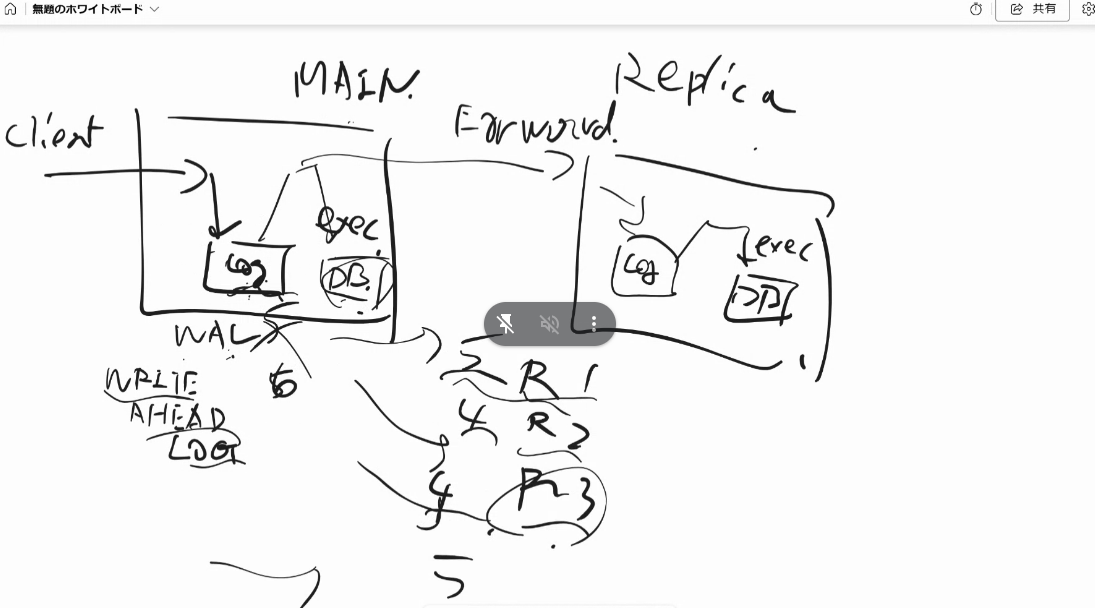 無題のホワイトボード
共有
MAIN.
Replica
Client
Forword.
exec
Log
DB.
exec
Log
DB
WAL
WRITE
AHEAD
LOG
6
2 R 1
4 R 2
R 3
5